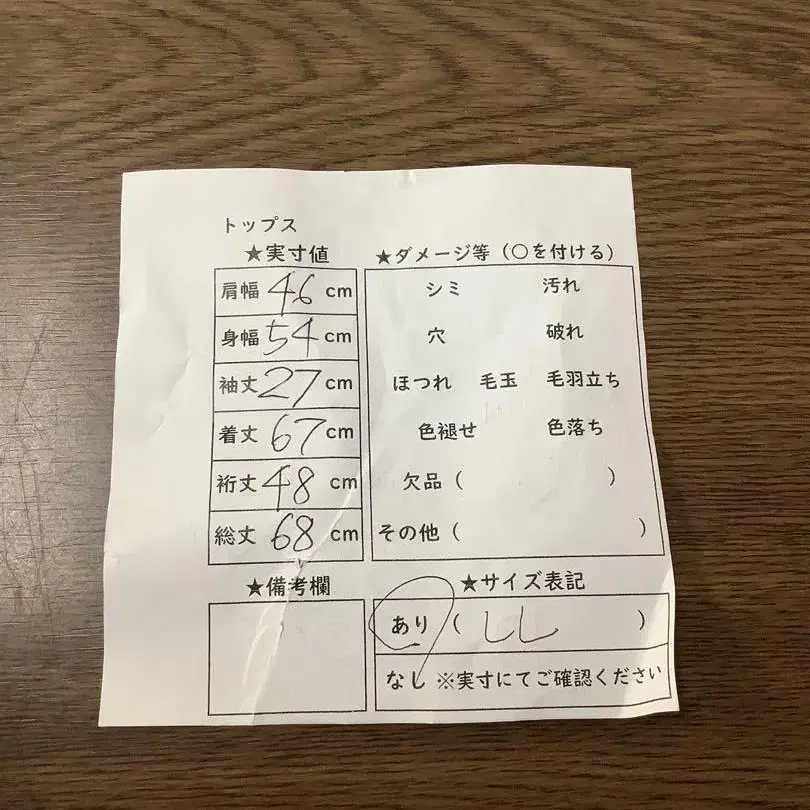 トップス
★実寸値
肩幅 46 cm
身幅 54 cm
袖丈 27 cm
着丈 67 cm
裄丈 48 cm
総丈 68 cm
★ダメージ等（○を付ける）
シミ 汚れ
穴 破れ
ほつれ 毛玉 毛羽立ち
色褪せ 色落ち
欠品（ ）
その他（ ）
★備考欄
★サイズ表記
あり（ LL ）
なし ※実寸にてご確認ください